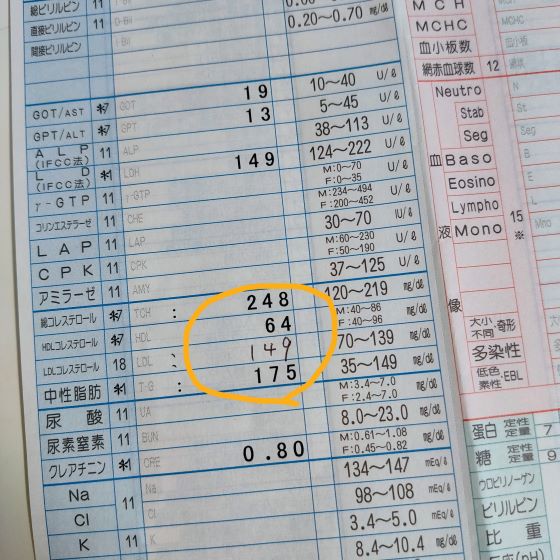 総ビリルビン 11 T-Bil
直接ビリルビン 11 D-Bil 0.20～0.70 mg/dℓ
間接ビリルビン
GOT/AST GOT 19 10～40 U/ℓ
GPT/ALT GPT 13 5～45 U/ℓ
ALP (IFCC法) 11 ALP 38～113 U/ℓ
LD (IFCC法) LDH 149 124～222 U/ℓ
γ-GTP 11 γ-GTP M:0～70 F:0～35 U/ℓ
コリンエステラーゼ 11 CHE M:234～494 F:200～452 U/ℓ
LAP 11 LAP 30～70 IU/ℓ
CPK 11 CPK M:60～230 F:50～190 U/ℓ
アミラーゼ 11 AMY 37～125 U/ℓ
総コレステロール TCH : 248 120～219 mg/dℓ
HDLコレステロール HDL 64 M:40～86 F:40～96 mg/dℓ
LDLコレステロール 18 LDL 149 70～139 mg/dℓ
中性脂肪 T-G : 175 35～149 mg/dℓ
尿酸 11 UA M:3.4～7.0 F:2.4～7.0 mg/dℓ
尿素窒素 11 BUN 8.0～23.0 mg/dℓ
クレアチニン CRE 0.80 M:0.61～1.08 F:0.45～0.82 mg/dℓ
Na 11 Na 134～147 mEq/ℓ
Cl Cl 98～108 mEq/ℓ
K K 3.4～5.0 mEq/ℓ
8.4～10.4 mg/dℓ
MCH
MCHC MCHC
血小板数 血小板
網赤血球数 12 網状
血液像
Neutro N
Stab St
Seg S
Baso B
Eosino E
Lympho L
Mono 15 ※
大小不同・奇形
多染性
低色素性・EBL
蛋白 定性 定量 7
糖 定性 定量 9
ウロビリノーゲン
ビリルビン
比重
反応(pH)